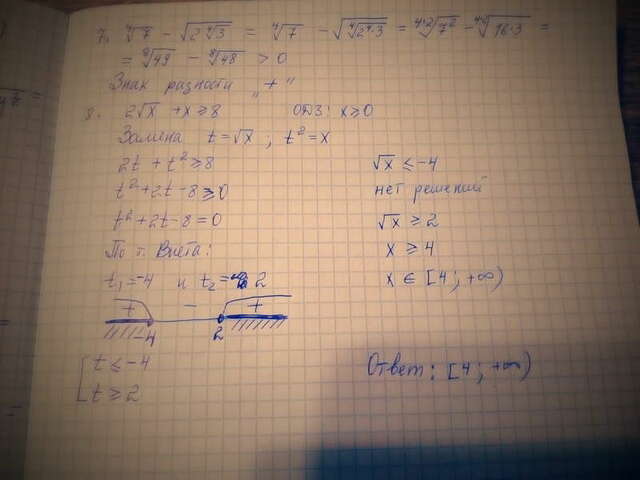 7. ⁴√7 - √(2 ⁴√3) = ⁴√7 - √(⁴√(2⁴·3)) = ⁴·²√7² - ⁴·²√(16·3) =
= ⁸√49 - ⁸√48 > 0
Знак разности „+"
8. 2√x + x ≥ 8 ОДЗ: x ≥ 0
Замена t = √x ; t² = x
2t + t² ≥ 8
t² + 2t - 8 ≥ 0
t² + 2t - 8 = 0
По т. Виета:
t₁ = -4 и t₂ = 2
+ - +
-4 2
[ t ≤ -4
t ≥ 2
√x ≤ -4
нет решений
√x ≥ 2
x ≥ 4
x ∈ [4 ; +∞)
Ответ: [4 ; +∞)